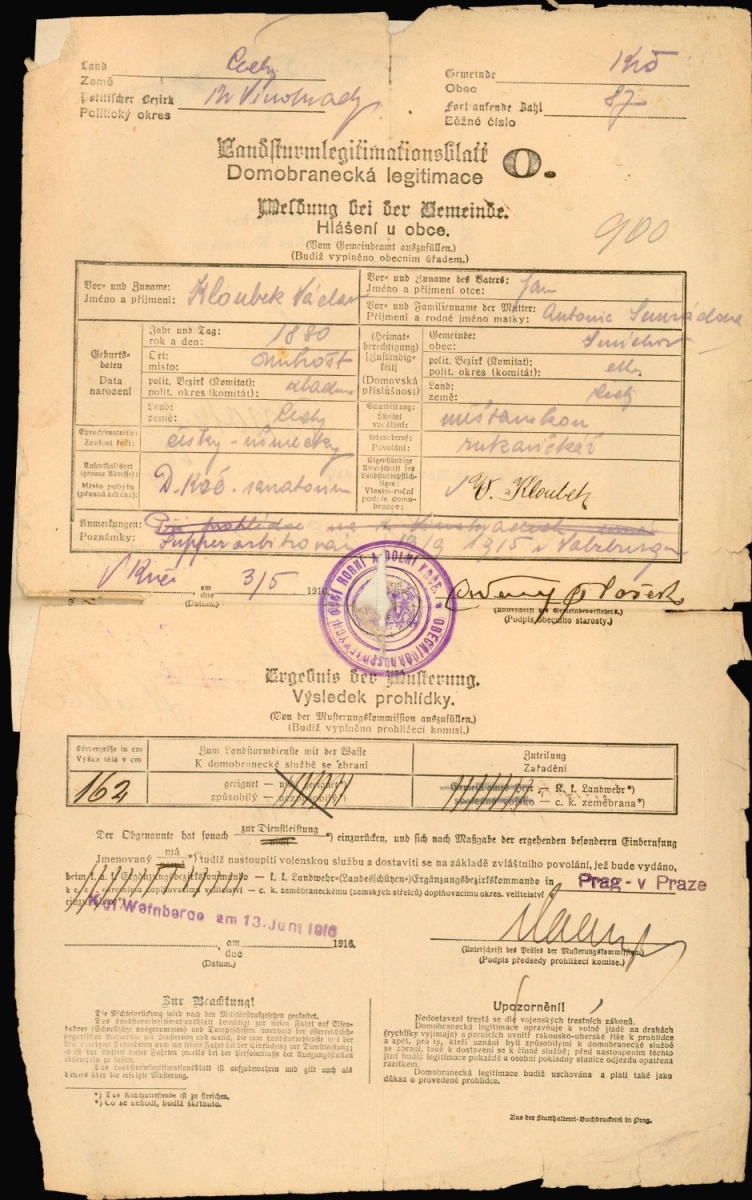 Land Čechy Gemeinde Krč
Země Obec
Politischer Bezirk Kr. Vinohrady Fortlaufende Zahl 87
Politický okres Běžné číslo
Landsturmlegitimationsblatt O.
Domobranecká legitimace
Meldung bei der Gemeinde.
Hlášení u obce. 900
(Vom Gemeindeamt auszufüllen.)
(Budiž vyplněno obecním úřadem.)
Vor- und Zuname: Kloubek Václav
Jméno a příjmení:
Vor- und Zuname des Vaters: Jan
Jméno a příjmení otce:
Vor- und Familienname der Mutter: Antonie
Příjmení a rodné jméno matky:
Geburts-
daten
Data
narození
Jahr und Tag: 1880
rok a den:
Ort:
místo:
polit. Bezirk (Komitat):
polit. okres (komitát):
Land: Čechy
země:
(Heimat-
berechtigung)
[Zuständig-
keit]
(Domovská
příslušnost)
Gemeinde: Smíchov
obec:
polit. Bezirk (Komitat):
polit. okres (komitát):
Land: Čechy
země:
Sprachkenntnisse: česky - německy
Znalost řečí:
Schulbildung: měšťanskou
Školní
vzdělání:
Lebensberuf: rukavičkář
Povolání:
Aufenthaltsort
(genaue Adresse): D. Krč. sanatorium
Místo pobytu
(přesná adresa):
Eigenhändige
Unterschrift des
Landsturmpflich-
tigen: V. Kloubek
Vlastnoruční
podpis domo-
brance:
Anmerkungen: Při prohlídce na K. Vinohradech
Poznámky: Supperarbitrován 19/9 1915 v Salzburgu
V Krči am 3/5 1916
dne
(Datum.)
(Unterschrift des Gemeindevorstehers.)
(Podpis obecního starosty.)
OBCÍ HORNÍ A DOLNÍ KRČE
Ergebnis der Musterung.
Výsledek prohlídky.
(Von der Musterungskommission auszufüllen.)
(Budiž vyplněno prohlížecí komisí.)
Körpergröße in cm Zum Landsturmdienste mit der Waffe Zuteilung
Výška těla v cm K domobranecké službě se zbraní Zařadění
162 geeignet — nicht geeignet*) Gemeinsames Heer — K. k. Landwehr*)
způsobilý — nezpůsobilý*) společné vojsko — c. k. zeměbrana*)
Der Obgenannte hat sonach zur Dienstleistung nicht *) einzurücken, und sich nach Maßgabe der ergehenden besonderen Einberufung
Jmenovaný má nemá *) budiž nastoupiti vojenskou službu a dostaviti se na základě zvláštního povolání, jež bude vydáno,
beim k. u. k. Ergänzungsbezirkskommando — k. k. Landwehr-(Landesschützen-)Ergänzungsbezirkskommando in Prag - v Praze
k c. a k. doplňovacímu velitelství — c. k. zeměbraneckému (zemských střelců) doplňovacímu okres. velitelství v
Kgl. Weinberge am 13. Juni 1916
am 1916.
dne
(Datum.)
(Unterschrift des Präses der Musterungskommission)
(Podpis předsedy prohlížecí komise.)
Zur Beachtung!
Die Nichteinrückung wird nach den Militärstrafgesetzen geahndet.
Das Landsturmlegitimationsblatt berechtigt zur freien Fahrt auf Eisen-
bahnen (Schnellzüge ausgenommen) und Dampfschiffen innerhalb der österreichisch-
ungarischen Monarchie zur Musterung und zurück, die zum Landsturmdienste mit der
Waffe geeignet Befundenen auch zur freien Fahrt bei der Einrückung zur Dienstleistung;
es ist vor Antritt dieser Fahrten jeweils bei der Personenkasse der Ausgangsstation
abstempeln zu lassen.
Das Landsturmlegitimationsblatt ist aufzubewahren und gilt auch als
Beweis über die erfolgte Musterung.
*) Das Nichtzutreffende ist zu streichen.
*) Co se nehodí, budiž škrtnuto.
Upozornění!
Nedostavení trestá se dle vojenských trestních zákonů.
Domobranecká legitimace opravňuje k volné jízdě na drahách
(rychlíky vyjímaje) a parnících uvnitř rakousko-uherské říše k prohlídce
a zpět, pro ty, kteří uznáni byli způsobilými k domobranecké službě
se zbraní, také k dostavení se k činné službě; před nastoupením těchto
jízd budiž legitimace pokaždé u osobní pokladny stanice odjezdu opatřena
razítkem.
Domobranecká legitimace budiž uschována a platí také jako
důkaz o provedené prohlídce.
Aus der Statthalterei-Buchdruckerei in Prag.